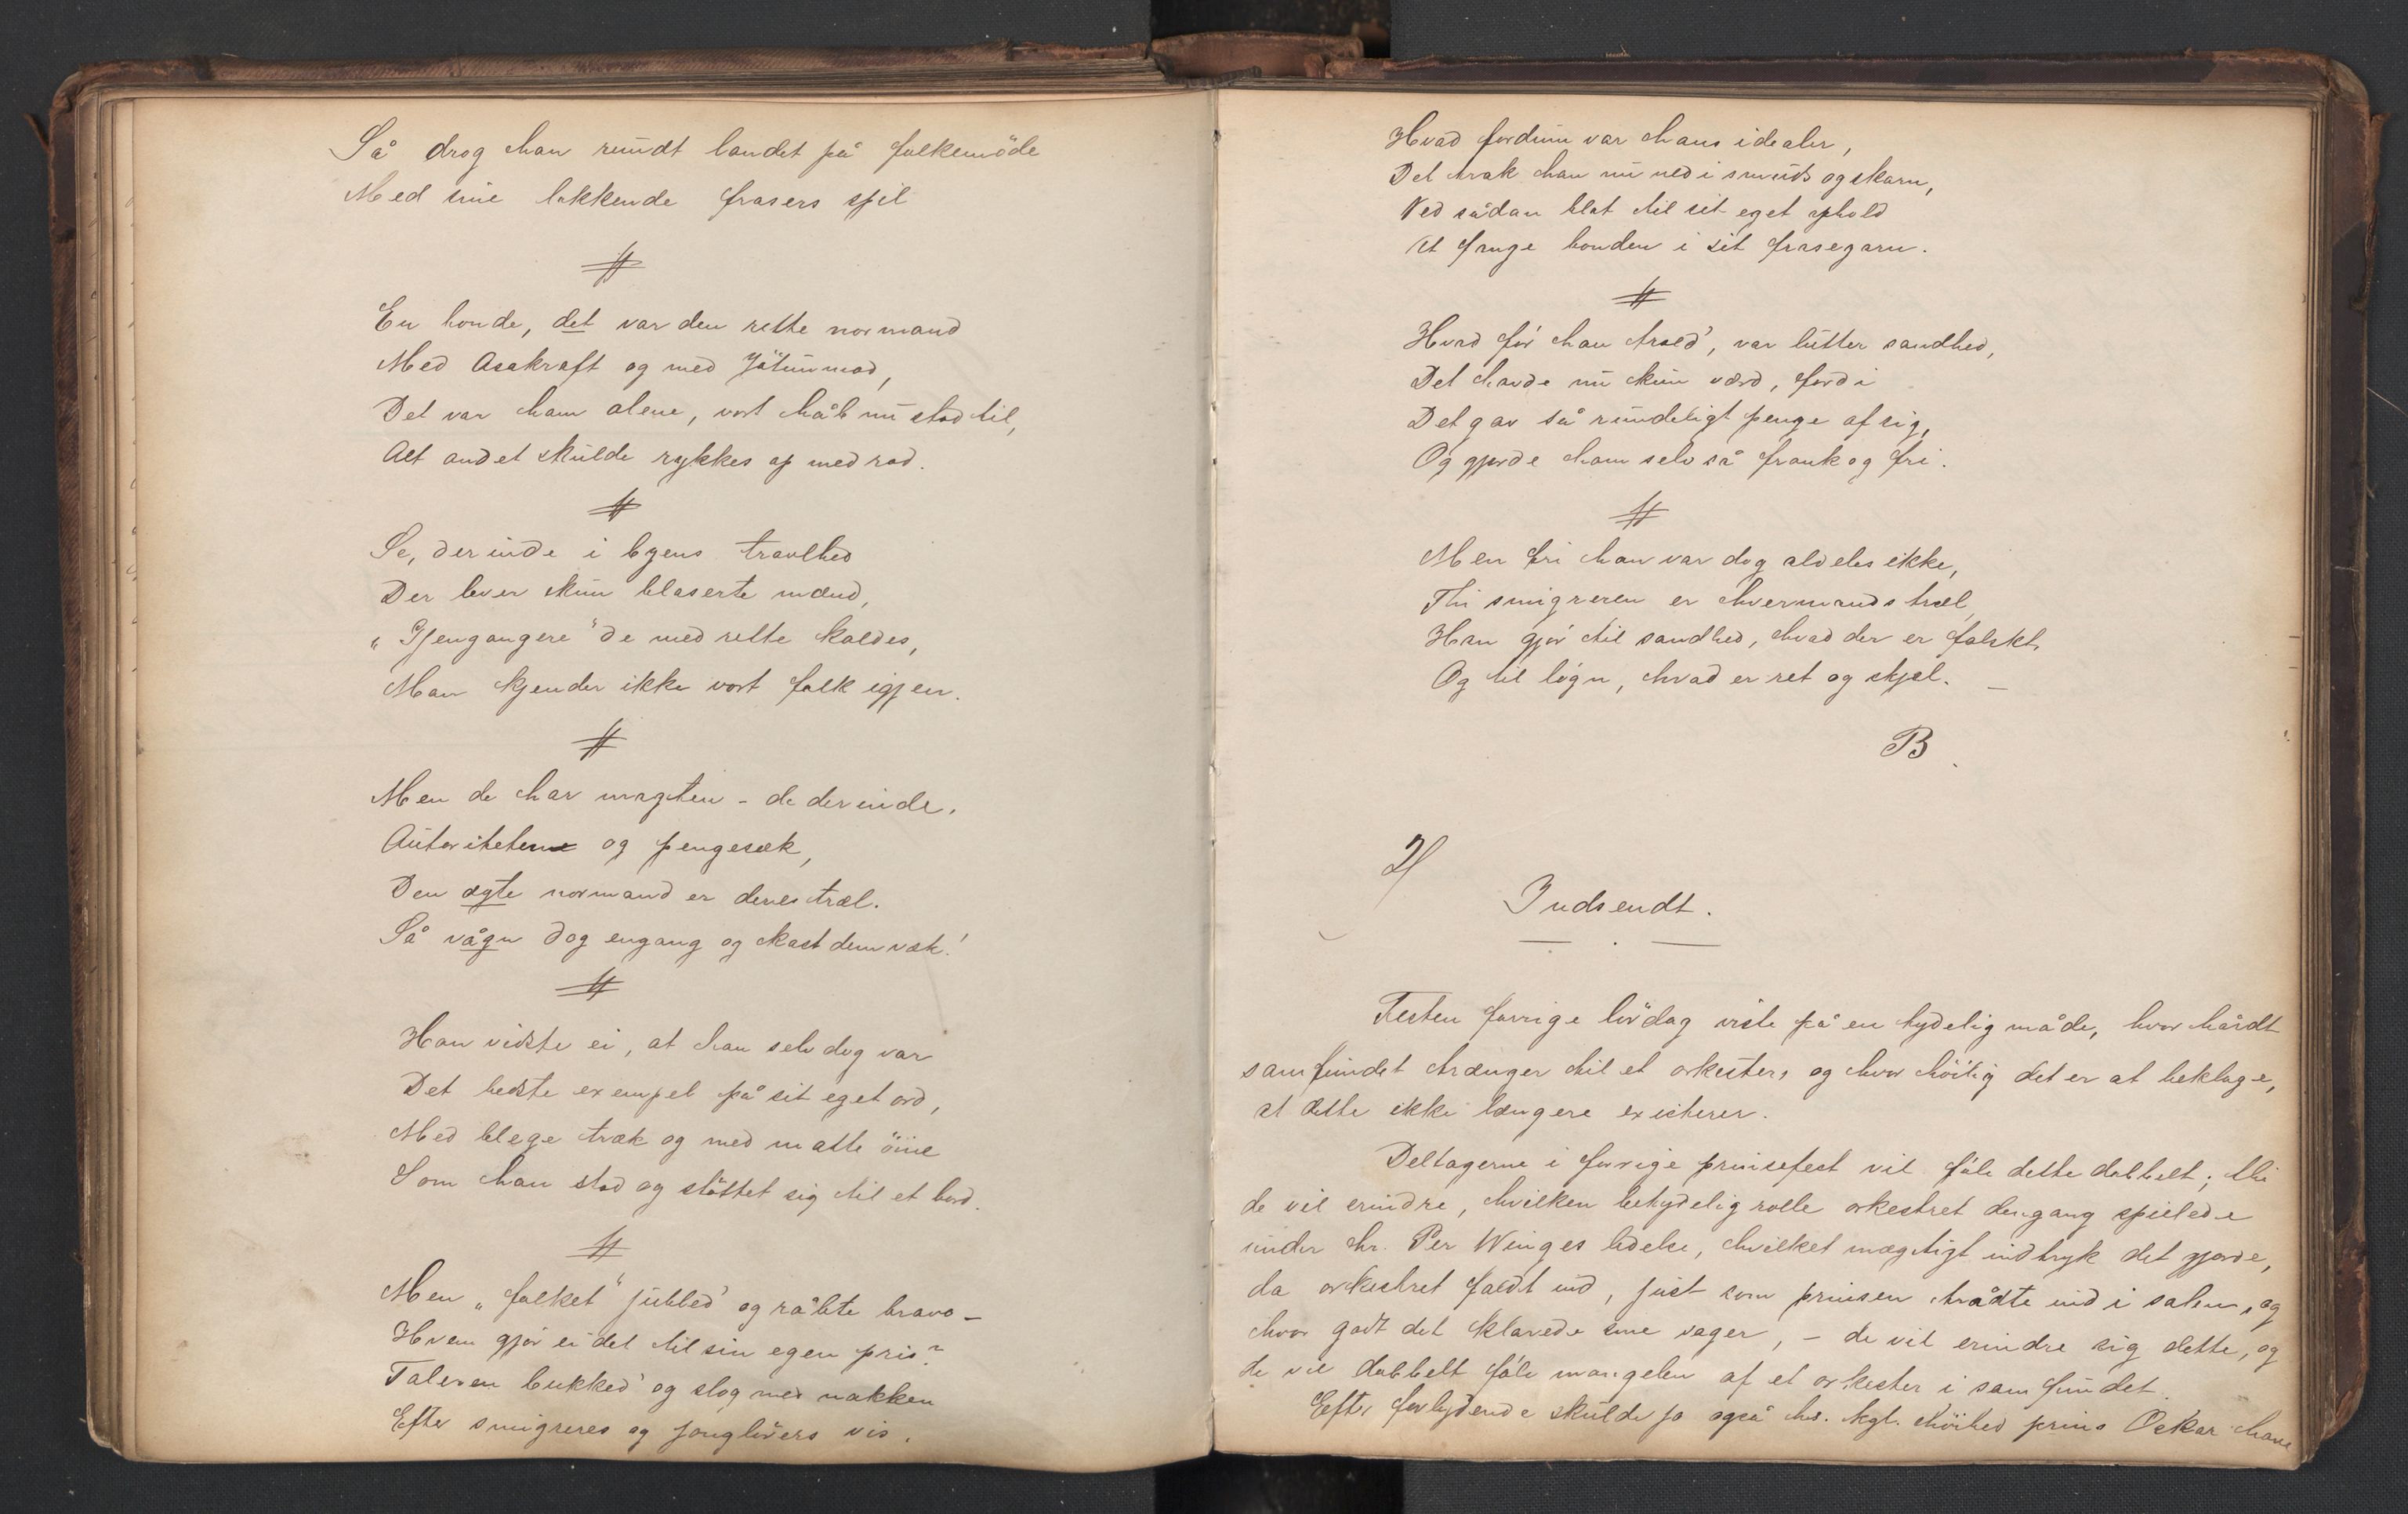 Så drog han rundt landet på folkemöde
Med sine lokkende frasers spil
#
En bonde, det var den rette normand
Med Asakraft og med Jötunmod,
Det var ham alene, vort håb nu stod til,
Alt andet skulde rykkes op med rod.
#
Se, derinde i byens travlhed
Der lever kun blaserte mænd,
„Gjengangere" de med rette kaldes,
Man kjender ikke vort folk igjen.
#
Men de har magten - de derinde,
Autoriteterne og pengesæk,
Den ægte normand er deres træl.
Så vågn dog engang og kast dem væk!
#
Han vidste ei, at han selv dog var
Det bedste exempel på sit eget ord,
Med blege træk og med matte öine
Som han stod og stöttet sig til et bord.
#
Men „folket" jubled' og råbte bravo -
Hvem gjör ei det til sin egen pris?
Taleren bukked' og slog med nakken
Efter smigreres og jonglörers vis.
Hvad fordum var hans idealer,
Det trak han nu ned i smuds og skarn,
Ved sådan blot til sit eget ophold
At fange bonden i sit frasegarn.
#
Hvad för han troed', var lutter sandhed,
Det havde nu kun værd, fordi
Det gav så rundeligt penge af sig,
Og gjorde ham selv så frank og fri.
#
Men fri han var dog aldeles ikke,
Thi smigreren er hvermands træl,
Han gjör til sandhed, hvad der er falskt,
Og til lögn, hvad er ret og skjæl. -
B.
2/
Indsendt.
Festen forrige lördag viste på en tydelig måde, hvor hårdt
samfundet trænger til et orkester, og hvor höilig det er at beklage,
at dette ikke længere existerer.
Deltagerne i forrige prinsefest vil föle dette dobbelt; thi
de vil erindre, hvilken betydelig rolle orkestret dengang spillede
under hr. Per Winges ledelse, hvilket mægtigt indtryk det gjorde,
da orkestret faldt ind, just som prinsen trådte ind i salen, og
hvor godt det klarede sine sager, - de vil erindre sig dette, og
de vil dobbelt föle mangelen af et orkester i samfundet.
Efter forlydende skulde jo også hs. kgl. höihed prins Oskar have